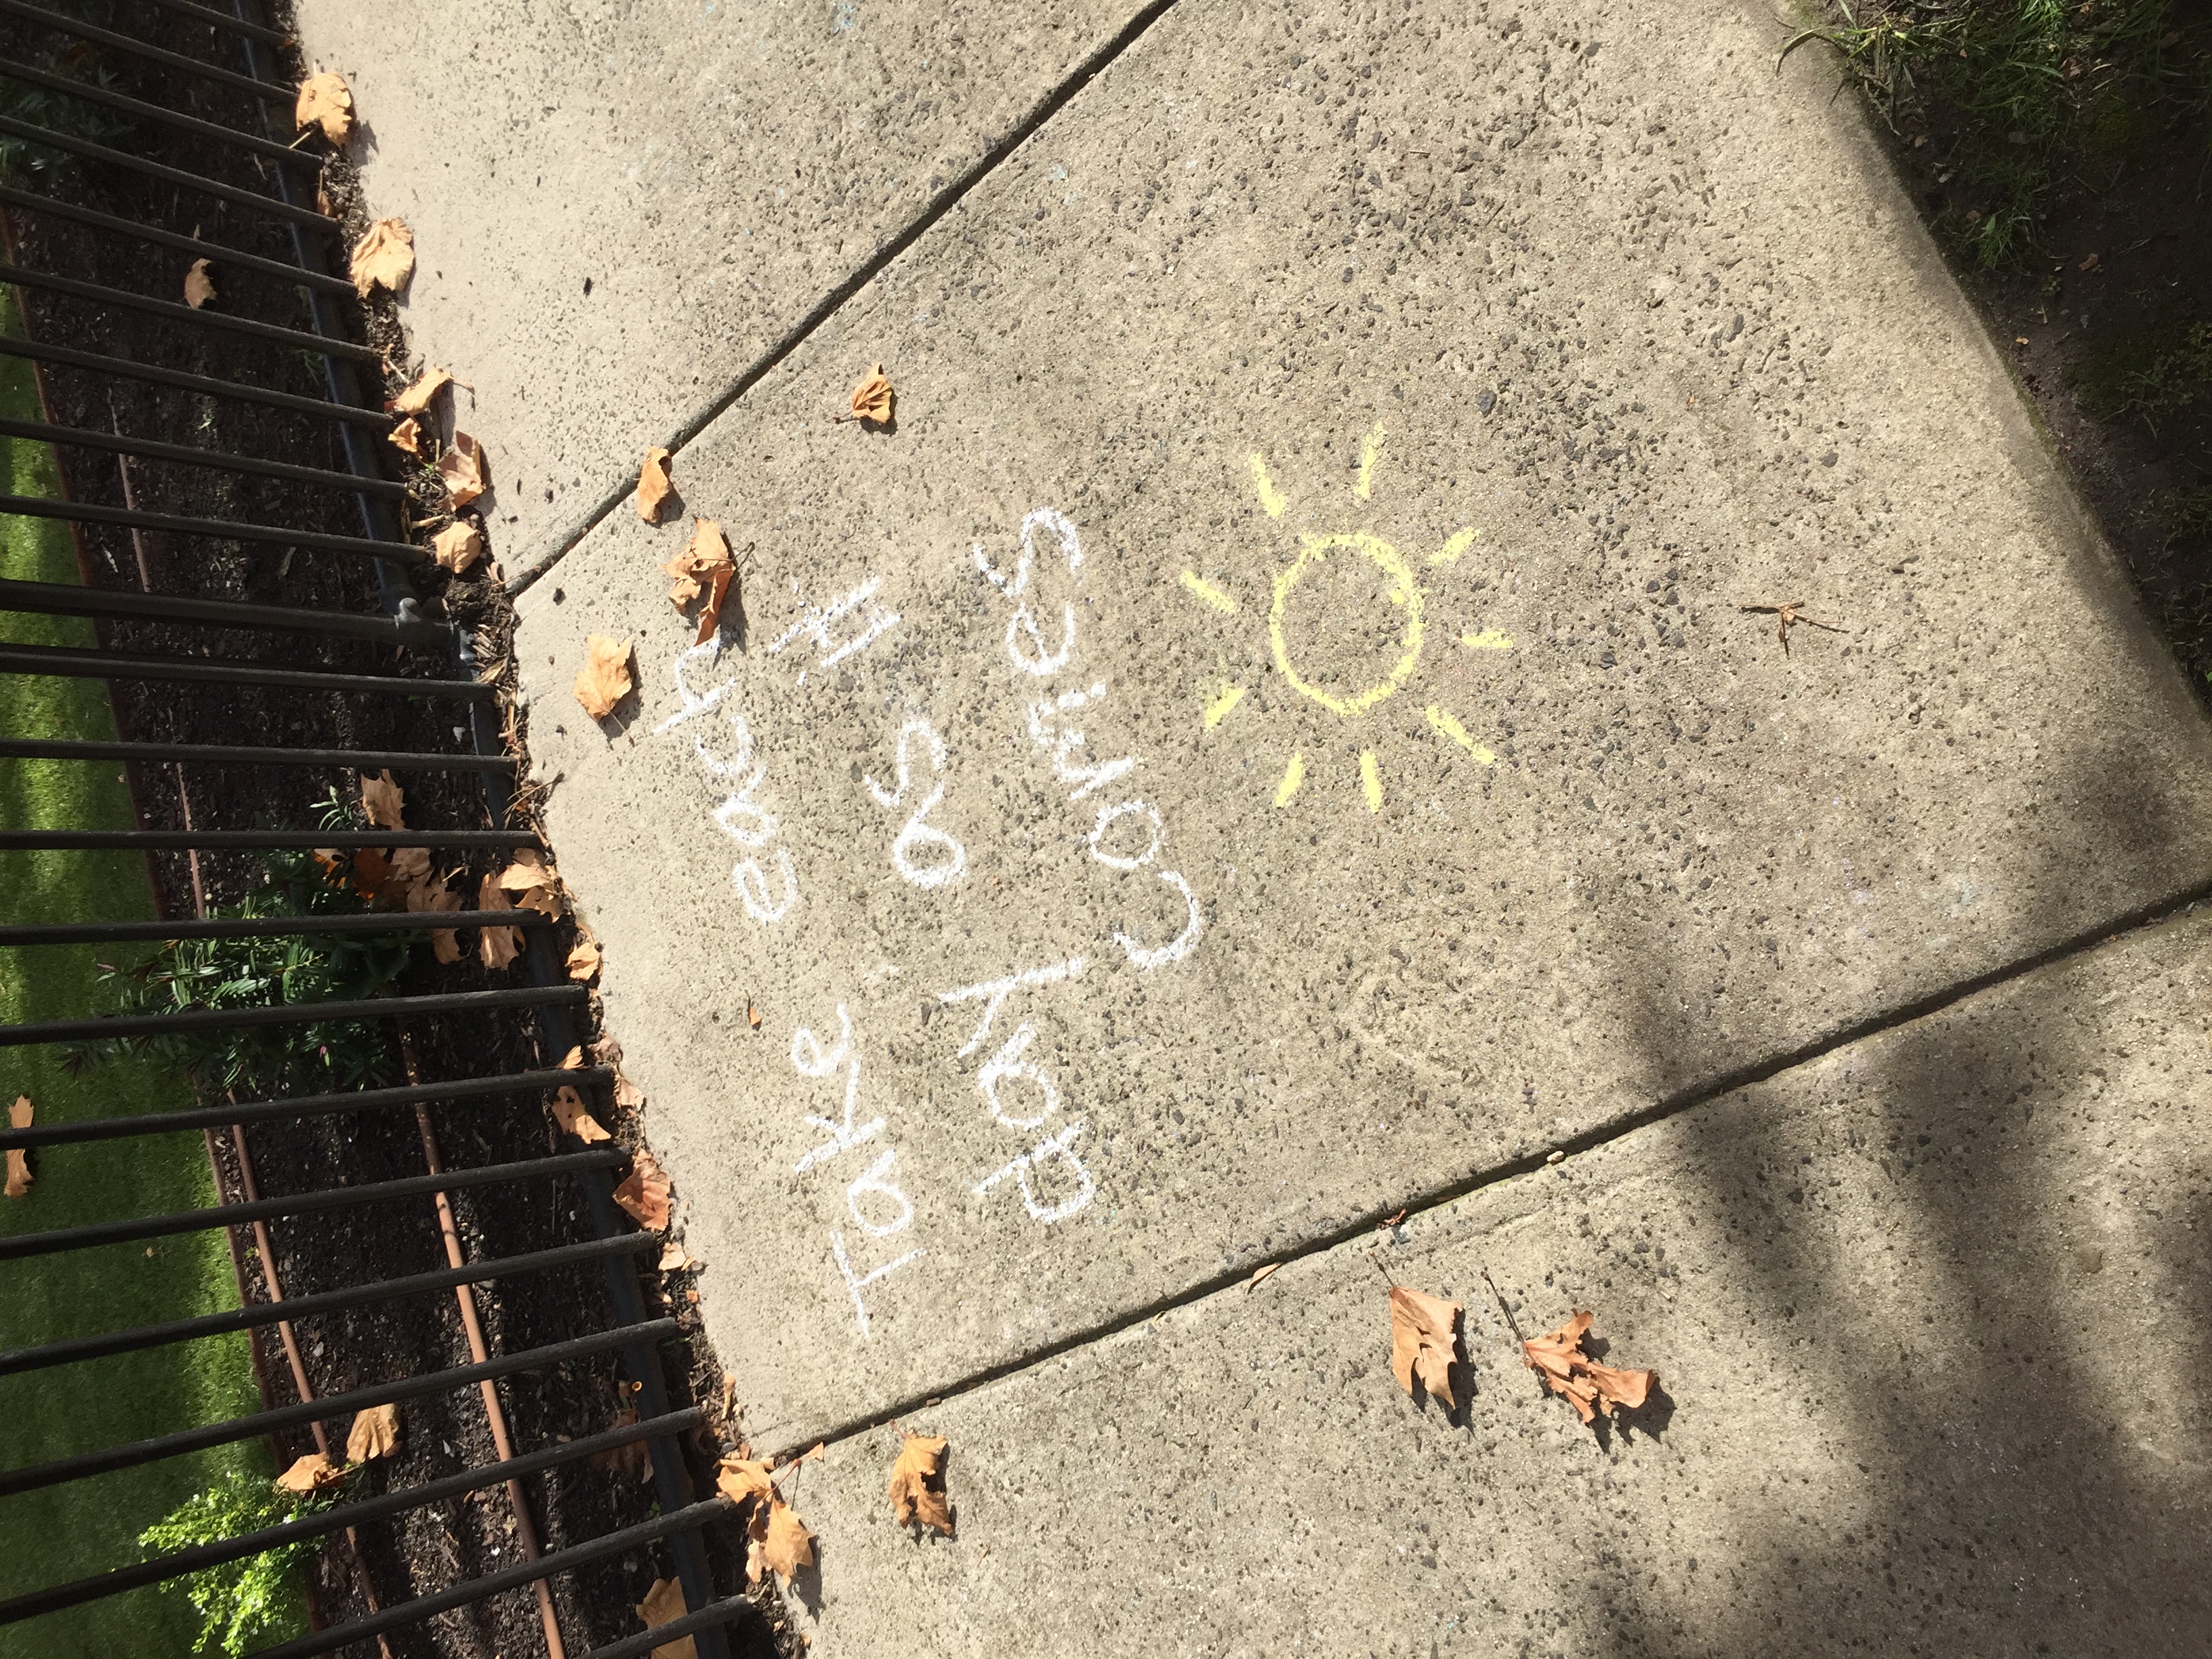 Take each
Day as it
Comes